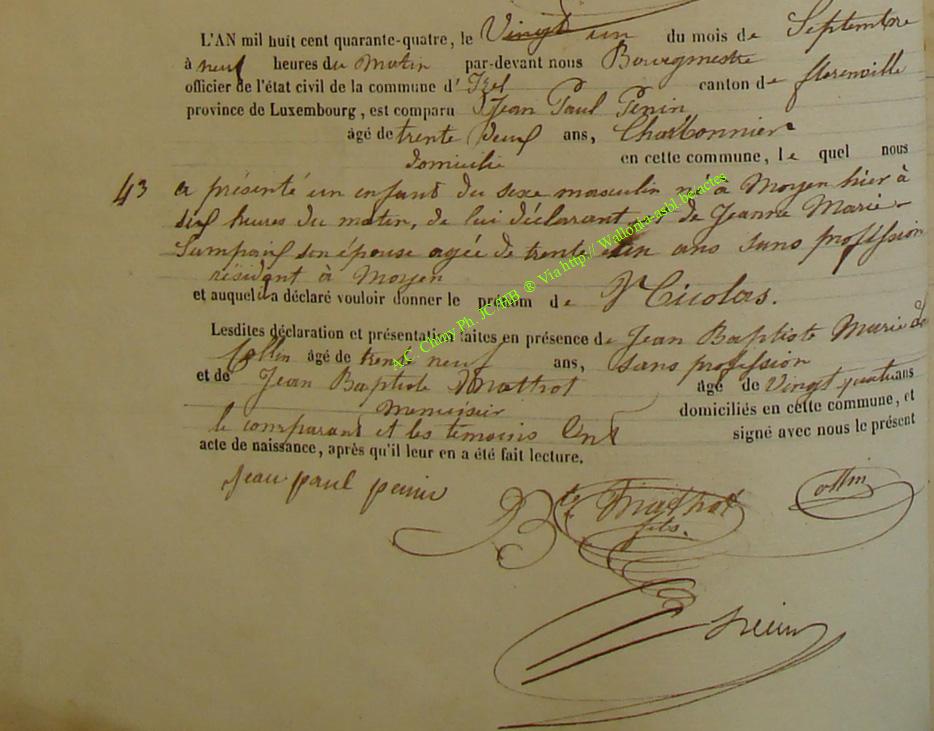 L'AN mil huit cent quarante-quatre, le Vingt un du mois de Septembre
à neuf heures du Matin par-devant nous Bourgmestre
officier de l'état civil de la commune d'Izel canton de florenville
province de Luxembourg, est comparu Jean Paul Penin
âgé de trente neuf ans, Charbonnier
domicilié en cette commune, le quel nous
43 a présenté un enfant du sexe masculin né à Moyen hier à
six heures du matin, de lui déclarant et de Jeanne Marie
son épouse agée de trente un ans sans profession
résidant à Moyen
et auquel il a déclaré vouloir donner le prénom de Nicolas.
Lesdites déclaration et présentation faites en présence de Jean Baptiste Marie
Collin âgé de trente neuf ans, sans profession
et de Jean Baptiste Mathot âgé de Vingt quatre ans
menuisier domiciliés en cette commune, et
le comparant et les témoins ont signé avec nous le présent
acte de naissance, après qu'il leur en a été fait lecture.
jean paul penin
Bte Mathot fils. Collin
A.C. Chiny Ph. JC/BB ® Via http:// Wallonia-asbl.be/actes